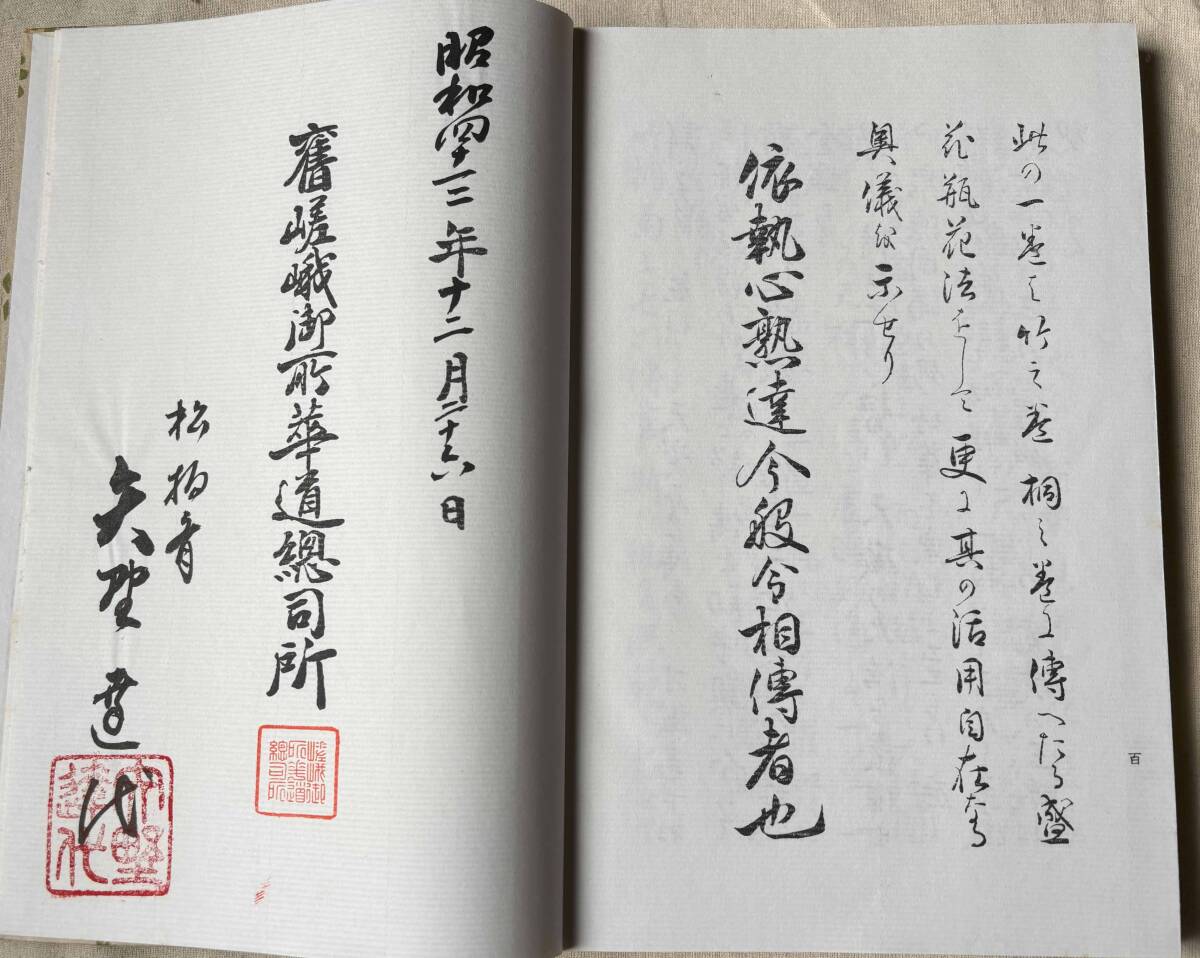 此の一巻は竹之巻桐之巻に傳へたる盛
花瓶花法をして更に其の活用自在なる
奥儀を示せり
依執心熟達今般令相傳者也
百
昭和四十三年十二月二十六日
舊嵯峨御所華道總司所
嵯峨御所華道總司所
松柏斎
矢野達代
矢野達代